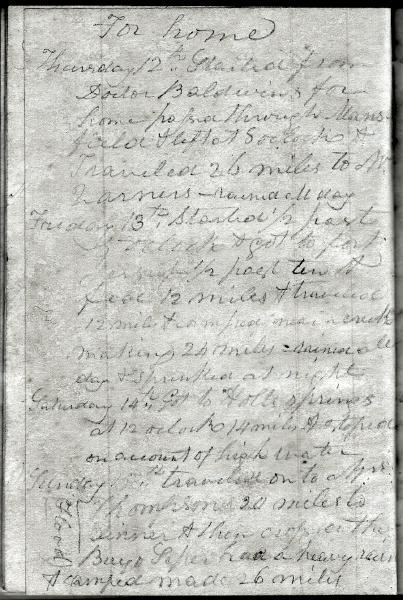 For home
Thursday 12th Started from
Doctor Baldwins for
home passd through Mans-
field & left at 8 oclock &
Traveled 26 miles to Mr
Garners – rained all day
Friday 13th Started 1/2 past
oclock & got to fort
1/2 past ten &
feed 12 miles & traveled
12 miles & camped near a creek
making 24 miles – rained all
day & sprinkled at night
Saturday 14th Got to Holly springs
at 12 oclock 14 miles & stoped
on account of high water
Sunday 15th traveled on to Mrs
Thompsons 20 miles to
dinner & then crossed the
Bayo Piper had a heavy rain
& camped made 26 miles